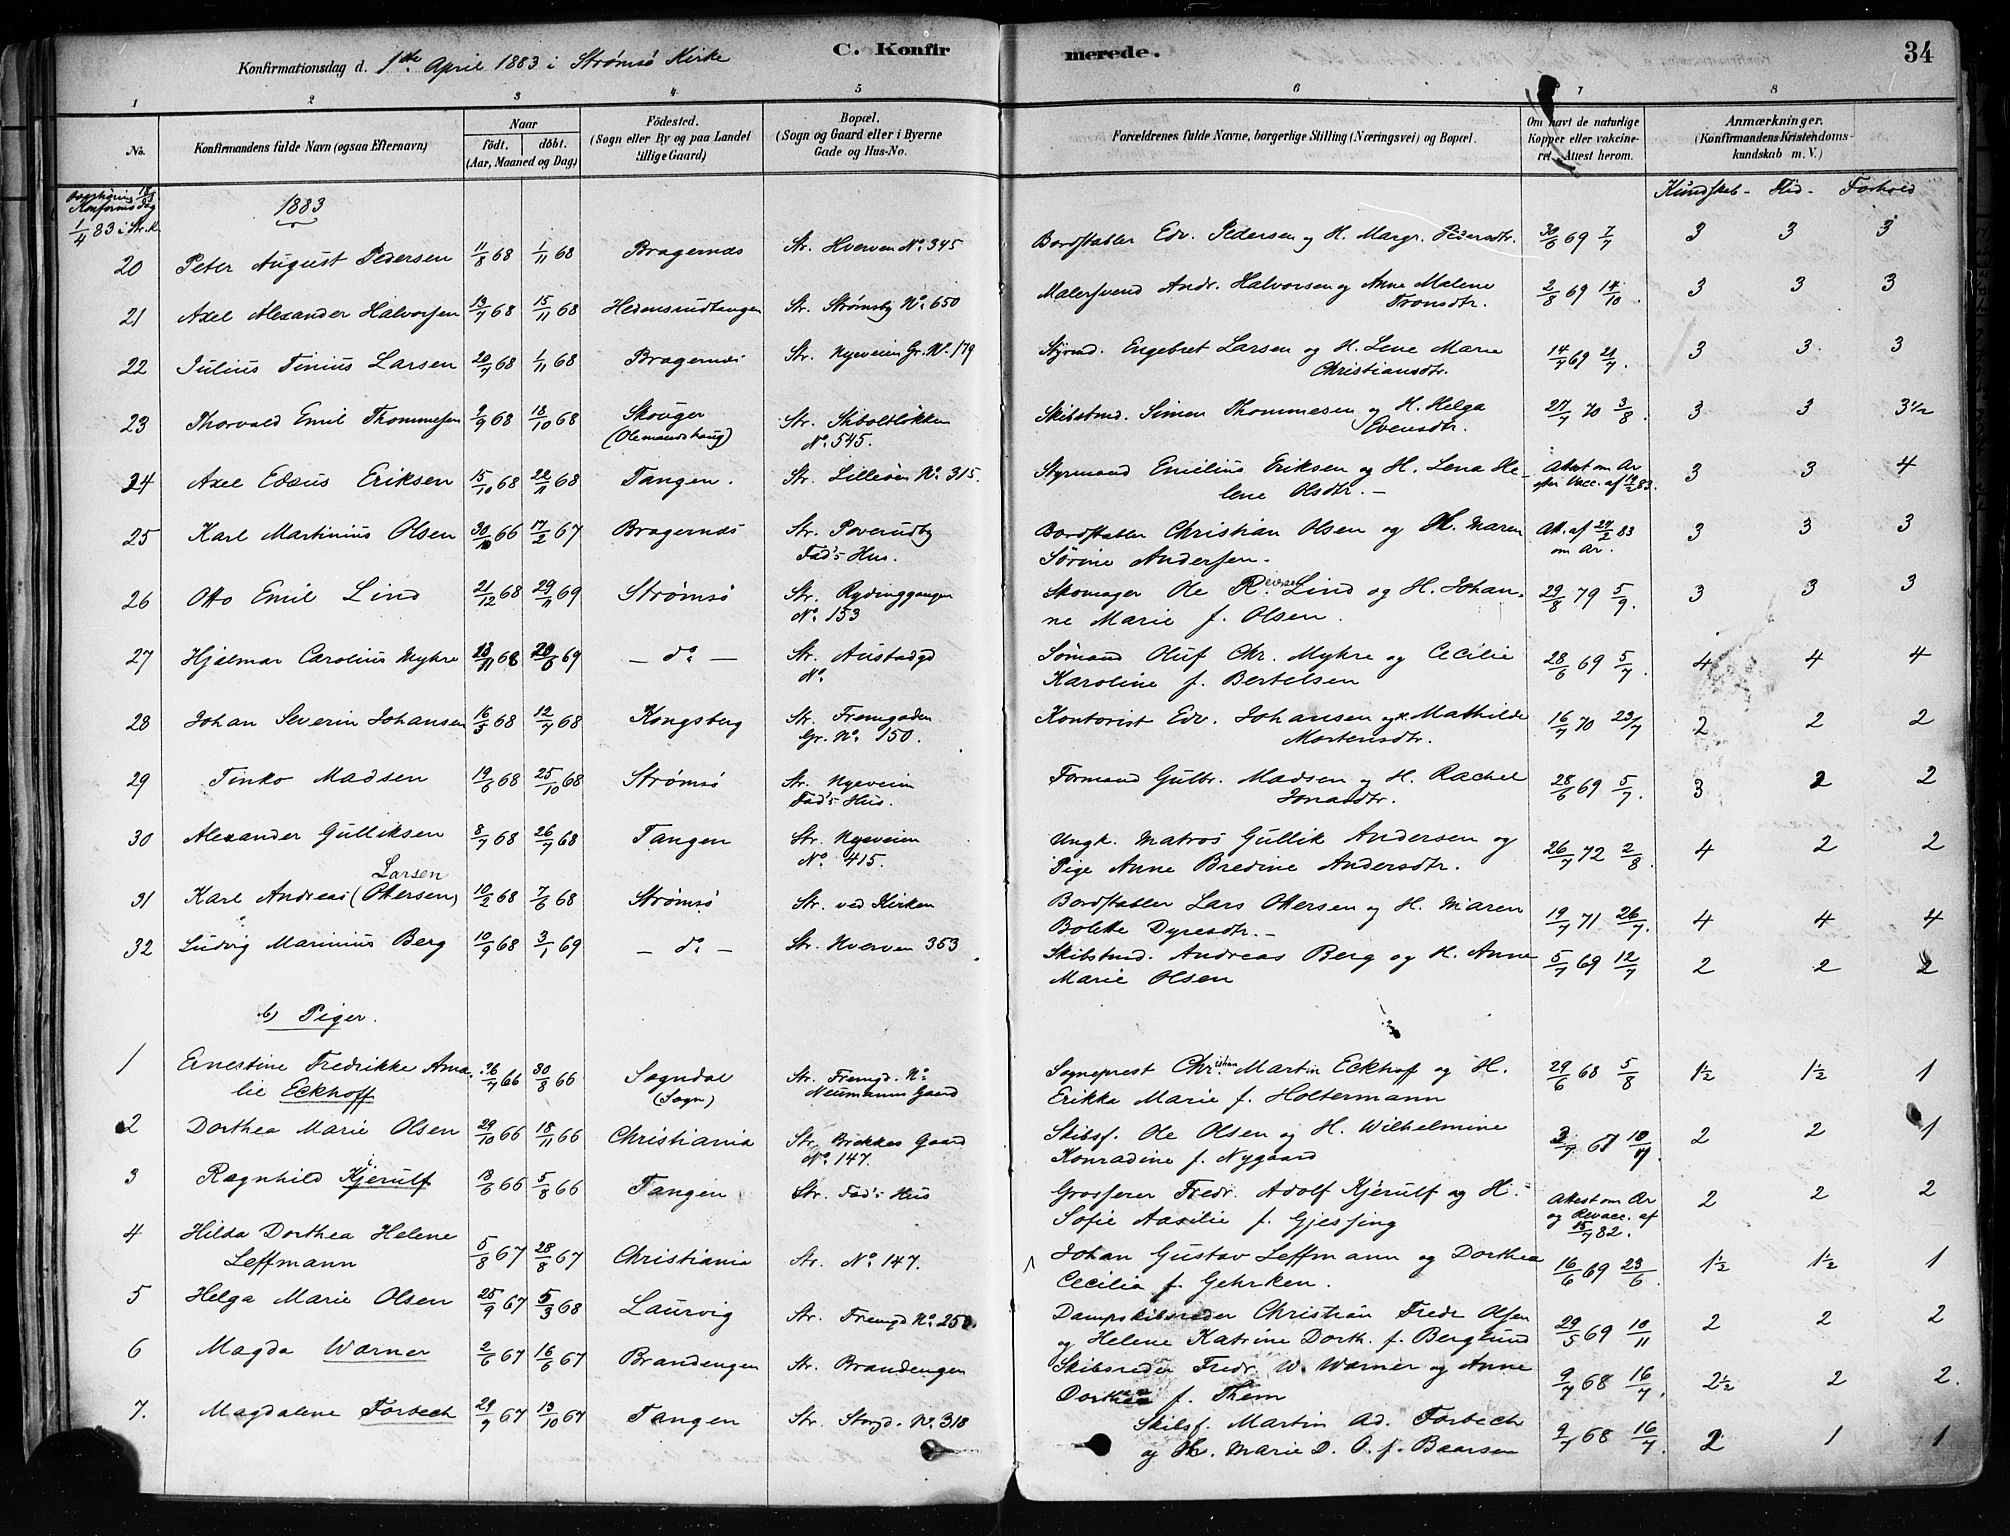 Konfirmationsdag d. 1ste April 1883 i Strømsø Kirke
C. Konfirmerede.
34
1 2 3 4 5 6 7 8
No.
Konfirmandens fulde Navn (ogsaa Efternavn)
Naar
födt. döbt.
(Aar, Maaned og Dag)
Födested.
(Sogn eller By og paa Landet
tillige Gaard)
Bopæl.
(Sogn og Gaard eller i Byerne
Gade og Hus-No.
Forældrenes fulde Navne, borgerlige Stilling (Næringsvei) og Bopæl.
Om havt de naturlige
Kopper eller vakcine-
ret. Attest herom.
Anmærkninger.
(Konfirmandens Kristendoms-
kundskab m. V.)
Kundskab - Flid - Forhold
1/4 83 i Str. K.
1883
20 Peter August Pedersen 11/8 68 1/11 68 Bragernæs Str. Hverven No. 345 Bordstabler Edv. Pedersen og H. Margr. Pedersdtr. 30/6 69 7/7 3 3 3
21 Axel Alexander Halvorsen 13/7 68 15/11 68 Hedensrudtangen Str. Strømsby No. 650 Malersvend Andr. Halvorsen og Anne Malene
Tronsdtr. 2/8 69 14/10. 3 3 3
22 Julius Tinius Larsen 20/7 68 1/11 68 Bragernæs Str. Nyeveien Gr. No. 179 Styrmd. Engebret Larsen og H. Lene Marie
Christiansdtr. 14/7 69 21/7. 3 3 3
23 Thorvald Emil Thommesen 2/9 68 18/10 68 Skouger
(Olemandshaug) Str. Skiboltløkken
No. 545. Skibstmd. Simen Thommesen og H. Helga
Evensdtr. 27/7 70 3/8. 3 3 3½
24 Axel Edsius Eriksen 15/10 68 22/11 68 Tangen. Str. Lilleøen No. 315. Styrmand Emilius Eriksen og H. Lena He-
lene Olsdtr. - Attest om Ar
efter Vacc. af 14/2 83. 3 3 4
25 Karl Martinius Olsen 30/10 66 17/2 67 Bragernæs Str. Poverudby
Fad's Hus. Bordstabler Christian Olsen og H. Maren
Sørine Andersen. Att. af 27/2 83
om Ar. 3 3 3
26 Otto Emil Lind 21/12 68 29/11 69 Strømsø Str. Rydinggangen
No. 153 Skomager Ole R. Lind og H. Johan-
ne Marie f. Olsen. 29/8 79 5/9. 3 3 3
27 Hjalmar Carolius Myhre 23/11 68 20/6 69 — do — Str. Austadgd
No. Sømand Oluf Chr. Myhre og Cecilie
Karoline f. Bertelsen 28/6 69 5/7. 4 4 4
28 Johan Severin Johansen 16/5 68 12/7 68 Kongsberg Str. Fremgaden
Gr. No. 150. Kontorist Edv. Johansen og Mathilde
Mortensdtr. 16/7 70 23/7 2 2 2
29 Tinko Madsen 19/6 68 25/10 68 Strømsø Str. Nyeveien
Fad's Hus. Formand Gulbr. Madsen og H. Rachel
Jonasdtr. 28/6 69 5/7. 3 2 2
30 Alexander Gulliksen 8/7 68 26/7 68 Tangen Str. Nyeveien
No. 415. Ungk. Matros Gullik Andersen og
Pige Anne Bredine Andersdtr. 26/7 72 2/8. 4 2 2
Larsen
31 Karl Andreas (Ottersen) 10/2 68 7/6 68 Strømsø Str. ved Kirken Bordstabler Lars Ottersen og H. Maren
Bolette Dyresdtr. - 19/7 71 26/7. 4 4 4
32 Ludvig Marinius Berg 10/9 68 3/1 69 — do — Str. Hverven 363 Skibstmd. Andreas Berg og H. Anne
Marie Olsen 5/7 69 12/7 2 2 2
b) Piger.
1 Ernestine Fredrikke Ama-
lie Eckhoff 26/7 66 30/8 66 Sogndal
(Sogn) Str. Fremgd. No.
Neumanns Gaard Sogneprest Christian Martin Eckhof og H.
Erikke Marie f. Holtermann 29/6 68 5/8 1½ 1½ 1
2 Dorthea Marie Olsen 29/10 66 18/11 66 Christiania Str. Brekkes Gaard
No. 147. Skibsf. Ole Olsen og H. Wilhelmine
Konradine f. Nygaard 3/7 67 10/7. 2 2 1
3 Ragnhild Kjerulf 13/6 66 5/8 66 Tangen Str. Fad's Hus Grosserer Fredr. Adolf Kjerulf og H.
Sofie Aasilie f. Gjessing Attest om Ar
og Revacc. af
15/7 82. 2 2 2
4 Hilda Dorthea Helene
Leffmann 5/8 67 28/8 67 Christiania Str. No. 147. Johan Gustav Leffmann og Dorthea
Cecilia f. Gehrken. 16/6 69 23/6. 1½ 1½ 1
5 Helga Marie Olsen 25/9 67 5/3 68 Laurvig Str. Fremgd No. 250. Dampskibsreder Christian Fredr Olsen
og Helene Katrine Dorth. f. Berglund 29/5 69 10/11 2 2 2
6 Magda Warner 2/6 67 16/6 67 Brandengen Str. Brandengen Skibsreder Fredr. W. Warner og Anne
Dorthea f. Them 9/7 68 16/7. 2½ 2 2.
7. Magdalene Forbech 29/9 67 13/10 67 Tangen Str. Storgd. No. 318 Skibsf. Martin Ad. Forbech
og Marie D. O. f. Baarsen 9/7 68 16/7. 2 1 1